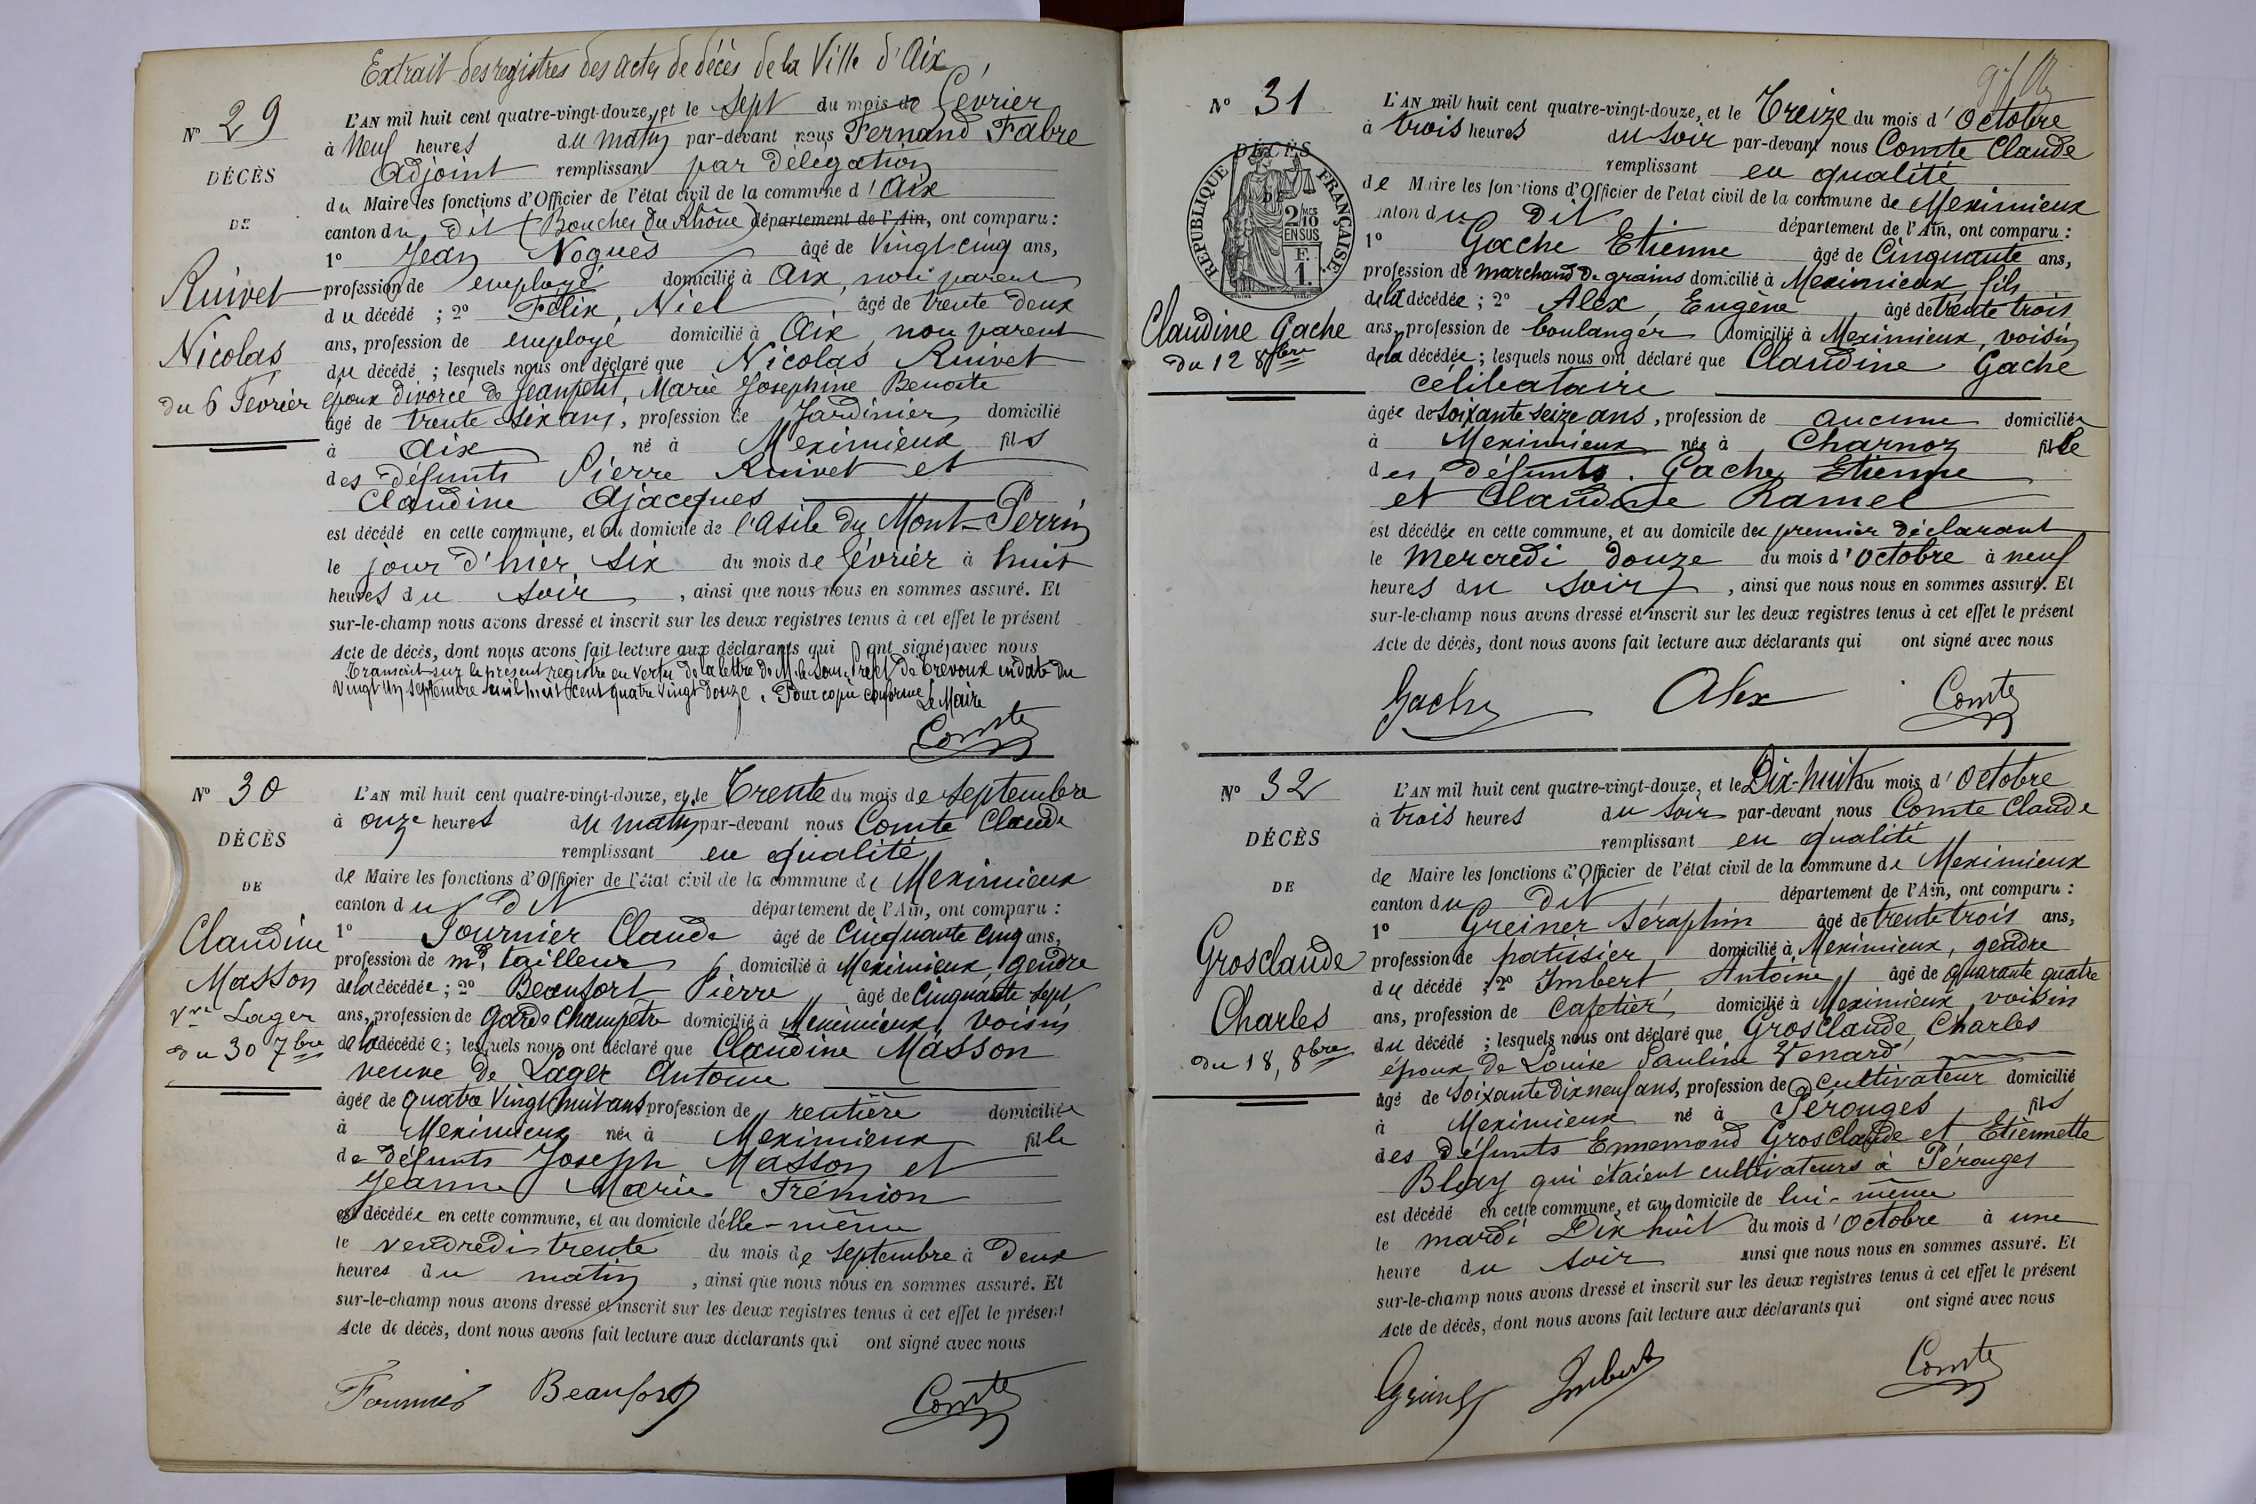 Extrait des registres des actes de décès de la Ville d'Aix
N° 29
DÉCÈS
DE
Ruivet
Nicolas
du 6 Février
L'AN mil huit cent quatre-vingt-douze, et le sept du mois de Février
à Neuf heures du matin par-devant nous Fernand Fabre
Adjoint remplissant par délégation
du Maire les fonctions d'Officier de l'état civil de la commune d'Aix
canton du dit (Bouches du Rhône) département de l'Ain, ont comparu :
1° Jean Noques âgé de Vingt cinq ans,
profession de employé domicilié à Aix, non parent
du décédé ; 2° Félix, Niel âgé de trente deux
ans, profession de employé domicilié à Aix, non parent
du décédé ; lesquels nous ont déclaré que Nicolas Ruivet
époux divorcé de Jeanpetit, Marie Josephine Benoite
âgé de trente six ans, profession de Jardinier domicilié
à Aix né à Meximieux fils
des défunts Pierre Ruivet et
Claudine Ajacques
est décédé en cette commune, et au domicile de l'asile du Mont-Perrin
le jour d'hier, six du mois de février à huit
heures du soir, ainsi que nous nous en sommes assuré. Et
sur-le-champ nous avons dressé et inscrit sur les deux registres tenus à cet effet le présent
Acte de décès, dont nous avons fait lecture aux déclarants qui ont signé avec nous
Transcrit sur le présent registre en vertu de la lettre de M. le Sous Préfet de Trévoux en date du
vingt un septembre mil huit cent quatre vingt douze. Pour copie conforme
Le Maire
Comte
N° 30
DÉCÈS
DE
Claudine
Masson
Vve Lager
du 30 7bre
L'AN mil huit cent quatre-vingt-douze, et le Trente du mois de Septembre
à onze heures du matin par-devant nous Comte Claude
remplissant en qualité
de Maire les fonctions d'Officier de l'état civil de la commune de Meximieux
canton du dit département de l'Ain, ont comparu :
1° Fournier Claude âgé de Cinquante cinq ans,
profession de md. tailleur domicilié à Meximieux, gendre
de la décédée ; 2° Beaufort Pierre âgé de Cinquante sept
ans, profession de Garde Champêtre domicilié à Meximieux, voisin
de la décédée ; lesquels nous ont déclaré que Claudine Masson
veuve de Lager Antoine
âgée de quatre Vingt huit ans profession de rentière domiciliée
à Meximieux née à Meximieux fille
de défunts Joseph Masson et
Jeanne Marie Frémion
est décédée en cette commune, et au domicile d'elle-même
le vendredi trente du mois de septembre à deux
heures du matin, ainsi que nous nous en sommes assuré. Et
sur-le-champ nous avons dressé et inscrit sur les deux registres tenus à cet effet le présent
Acte de décès, dont nous avons fait lecture aux déclarants qui ont signé avec nous
Fournier Beaufort Comte
N° 31
DÉCÈS
RÉPUBLIQUE FRANÇAISE.
2/10 EN SUS
F. 1.
Claudine Gache
du 12 8bre
L'AN mil huit cent quatre-vingt-douze, et le Treize du mois d'Octobre
à trois heures du soir par-devant nous Comte Claude
remplissant en qualité
de Maire les fonctions d'Officier de l'état civil de la commune de Meximieux
canton du dit département de l'Ain, ont comparu :
1° Gache Etienne âgé de Cinquante ans,
profession de marchand de grains domicilié à Meximieux, fils
de la décédée ; 2° Alex, Eugène âgé de trente trois
ans, profession de boulanger domicilié à Meximieux, voisin
de la décédée ; lesquels nous ont déclaré que Claudine Gache
célibataire
âgée de soixante seize ans, profession de aucune domiciliée
à Meximieux née à Charnoz fille
des défunts Gache Etienne
et Claudine Ramel
est décédée en cette commune, et au domicile du premier déclarant
le Mercredi douze du mois d'octobre à neuf
heures du soir, ainsi que nous nous en sommes assuré. Et
sur-le-champ nous avons dressé et inscrit sur les deux registres tenus à cet effet le présent
Acte de décès, dont nous avons fait lecture aux déclarants qui ont signé avec nous
Gache Alex Comte
N° 32
DÉCÈS
DE
Grosclaude
Charles
du 18, 8bre
L'AN mil huit cent quatre-vingt-douze, et le Dix-huit du mois d'Octobre
à trois heures du soir par-devant nous Comte Claude
remplissant en qualité
de Maire les fonctions d'Officier de l'état civil de la commune de Meximieux
canton du dit département de l'Ain, ont comparu :
1° Greiner Séraphin âgé de trente trois ans,
profession de patissier domicilié à Meximieux, gendre
du décédé ; 2° Imbert, Antoine, âgé de quarante quatre
ans, profession de cafetier domicilié à Meximieux, voisin
du décédé ; lesquels nous ont déclaré que Grosclaude, Charles
époux de Louise Pauline Venard
âgé de soixante dix neuf ans, profession de cultivateur domicilié
à Meximieux né à Pérouges fils
des défunts Ennemond Grosclaude et Etiennette
Blay qui étaient cultivateurs à Pérouges
est décédé en cette commune, et au domicile de lui-même
le mardi Dix huit du mois d'octobre à une
heure du soir ainsi que nous nous en sommes assuré. Et
sur-le-champ nous avons dressé et inscrit sur les deux registres tenus à cet effet le présent
Acte de décès, dont nous avons fait lecture aux déclarants qui ont signé avec nous
Greiner Imbert Comte